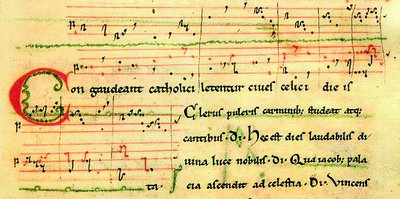 Con gaudeant catholici letentur ciues celici die is
Clerus pulcris carminib; studeat atq;
cantibus. di. Hec est dies laudabilis di
uina luce nobilis. di. Qua iacob; pala
ta. cia ascendit ad celestia. Di. Vincens